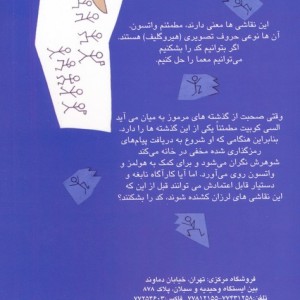 این نقاشی ها معنی دارند، مطمئنم واتسون.
آن ها نوعی حروف تصویری (هیروگلیف) هستند.
اگر بتوانیم کد را بشکنیم
می‌توانیم معما را حل کنیم.
وقتی صحبت از گذشته های مرموز به میان می آید
السی کوبیت مطمئناً یکی از این گذشته ها را دارد.
بنابراین هنگامی که او شروع به دریافت پیام‌های
رمزگذاری شده مخفی در خانه می‌کند
شوهرش نگران می‌شود و برای کمک به هولمز و
واتسون روی می‌آورد. اما آیا کارآگاه نابغه و
دستیار قابل اعتمادش می توانند قبل از این که
این نقاشی های لرزان کشنده شوند، کد را بشکنند؟
فروشگاه مرکزی: تهران، خیابان دماوند
بین ایستگاه وحیدیه و سبلان، پلاک ۸۷۸
تلفن: ۷۷۴۳۱۲۵۸-۷۷۸۱۲۱۵۵ فاکس: ۷۷۲۵۴۶۰۳